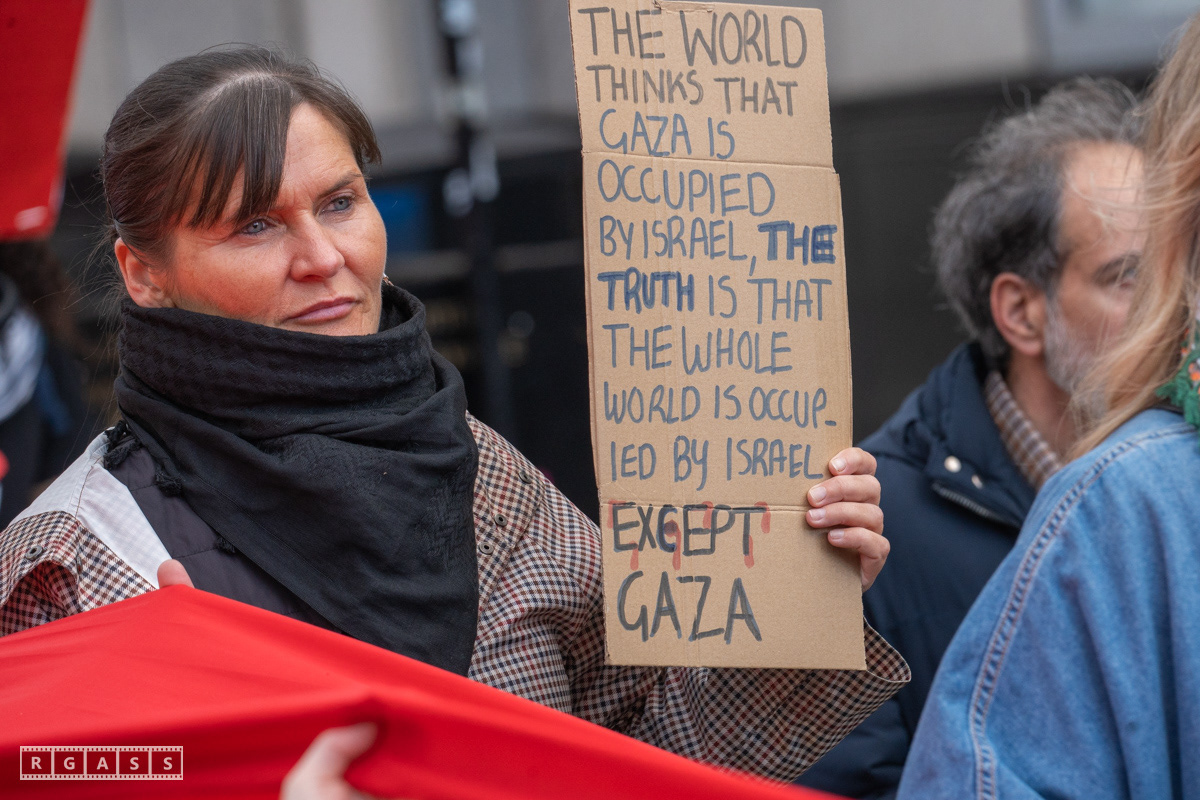 THE WORLD
THINKS THAT
GAZA IS
OCCUPIED
BY ISRAEL, THE
TRUTH IS THAT
THE WHOLE
WORLD IS OCCUP-
IED BY ISRAEL
EXCEPT
GAZA
RGASS